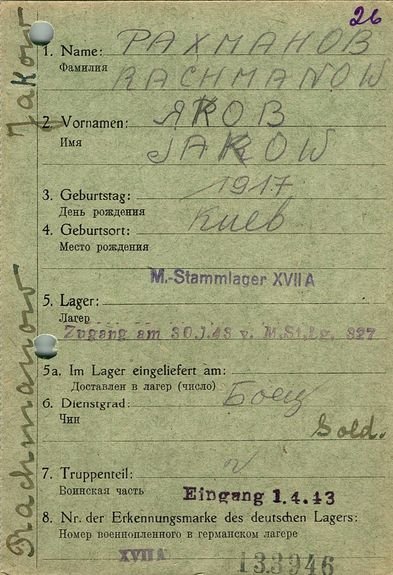 26
1. Name: РАХМАНОВ
Фамилия RACHMANOW
2. Vornamen: ЯКОВ
Имя JAKOW
3. Geburtstag: 1917
День рождения
4. Geburtsort: Киев
Место рождения
M.-Stammlager XVII A
5. Lager:
Лагер
Zugang am 30.1.43 v. M.St.Lg. 327
5a. Im Lager eingeliefert am:
Доставлен в лагер (число)
6. Dienstgrad: Боец
Чин Sold.
7. Truppenteil:
Воинская часть Eingang 1.4.43
8. Nr. der Erkennungsmarke des deutschen Lagers:
Номер военнопленного в германском лагере
XVII A 133946
Rachmanow Jakow